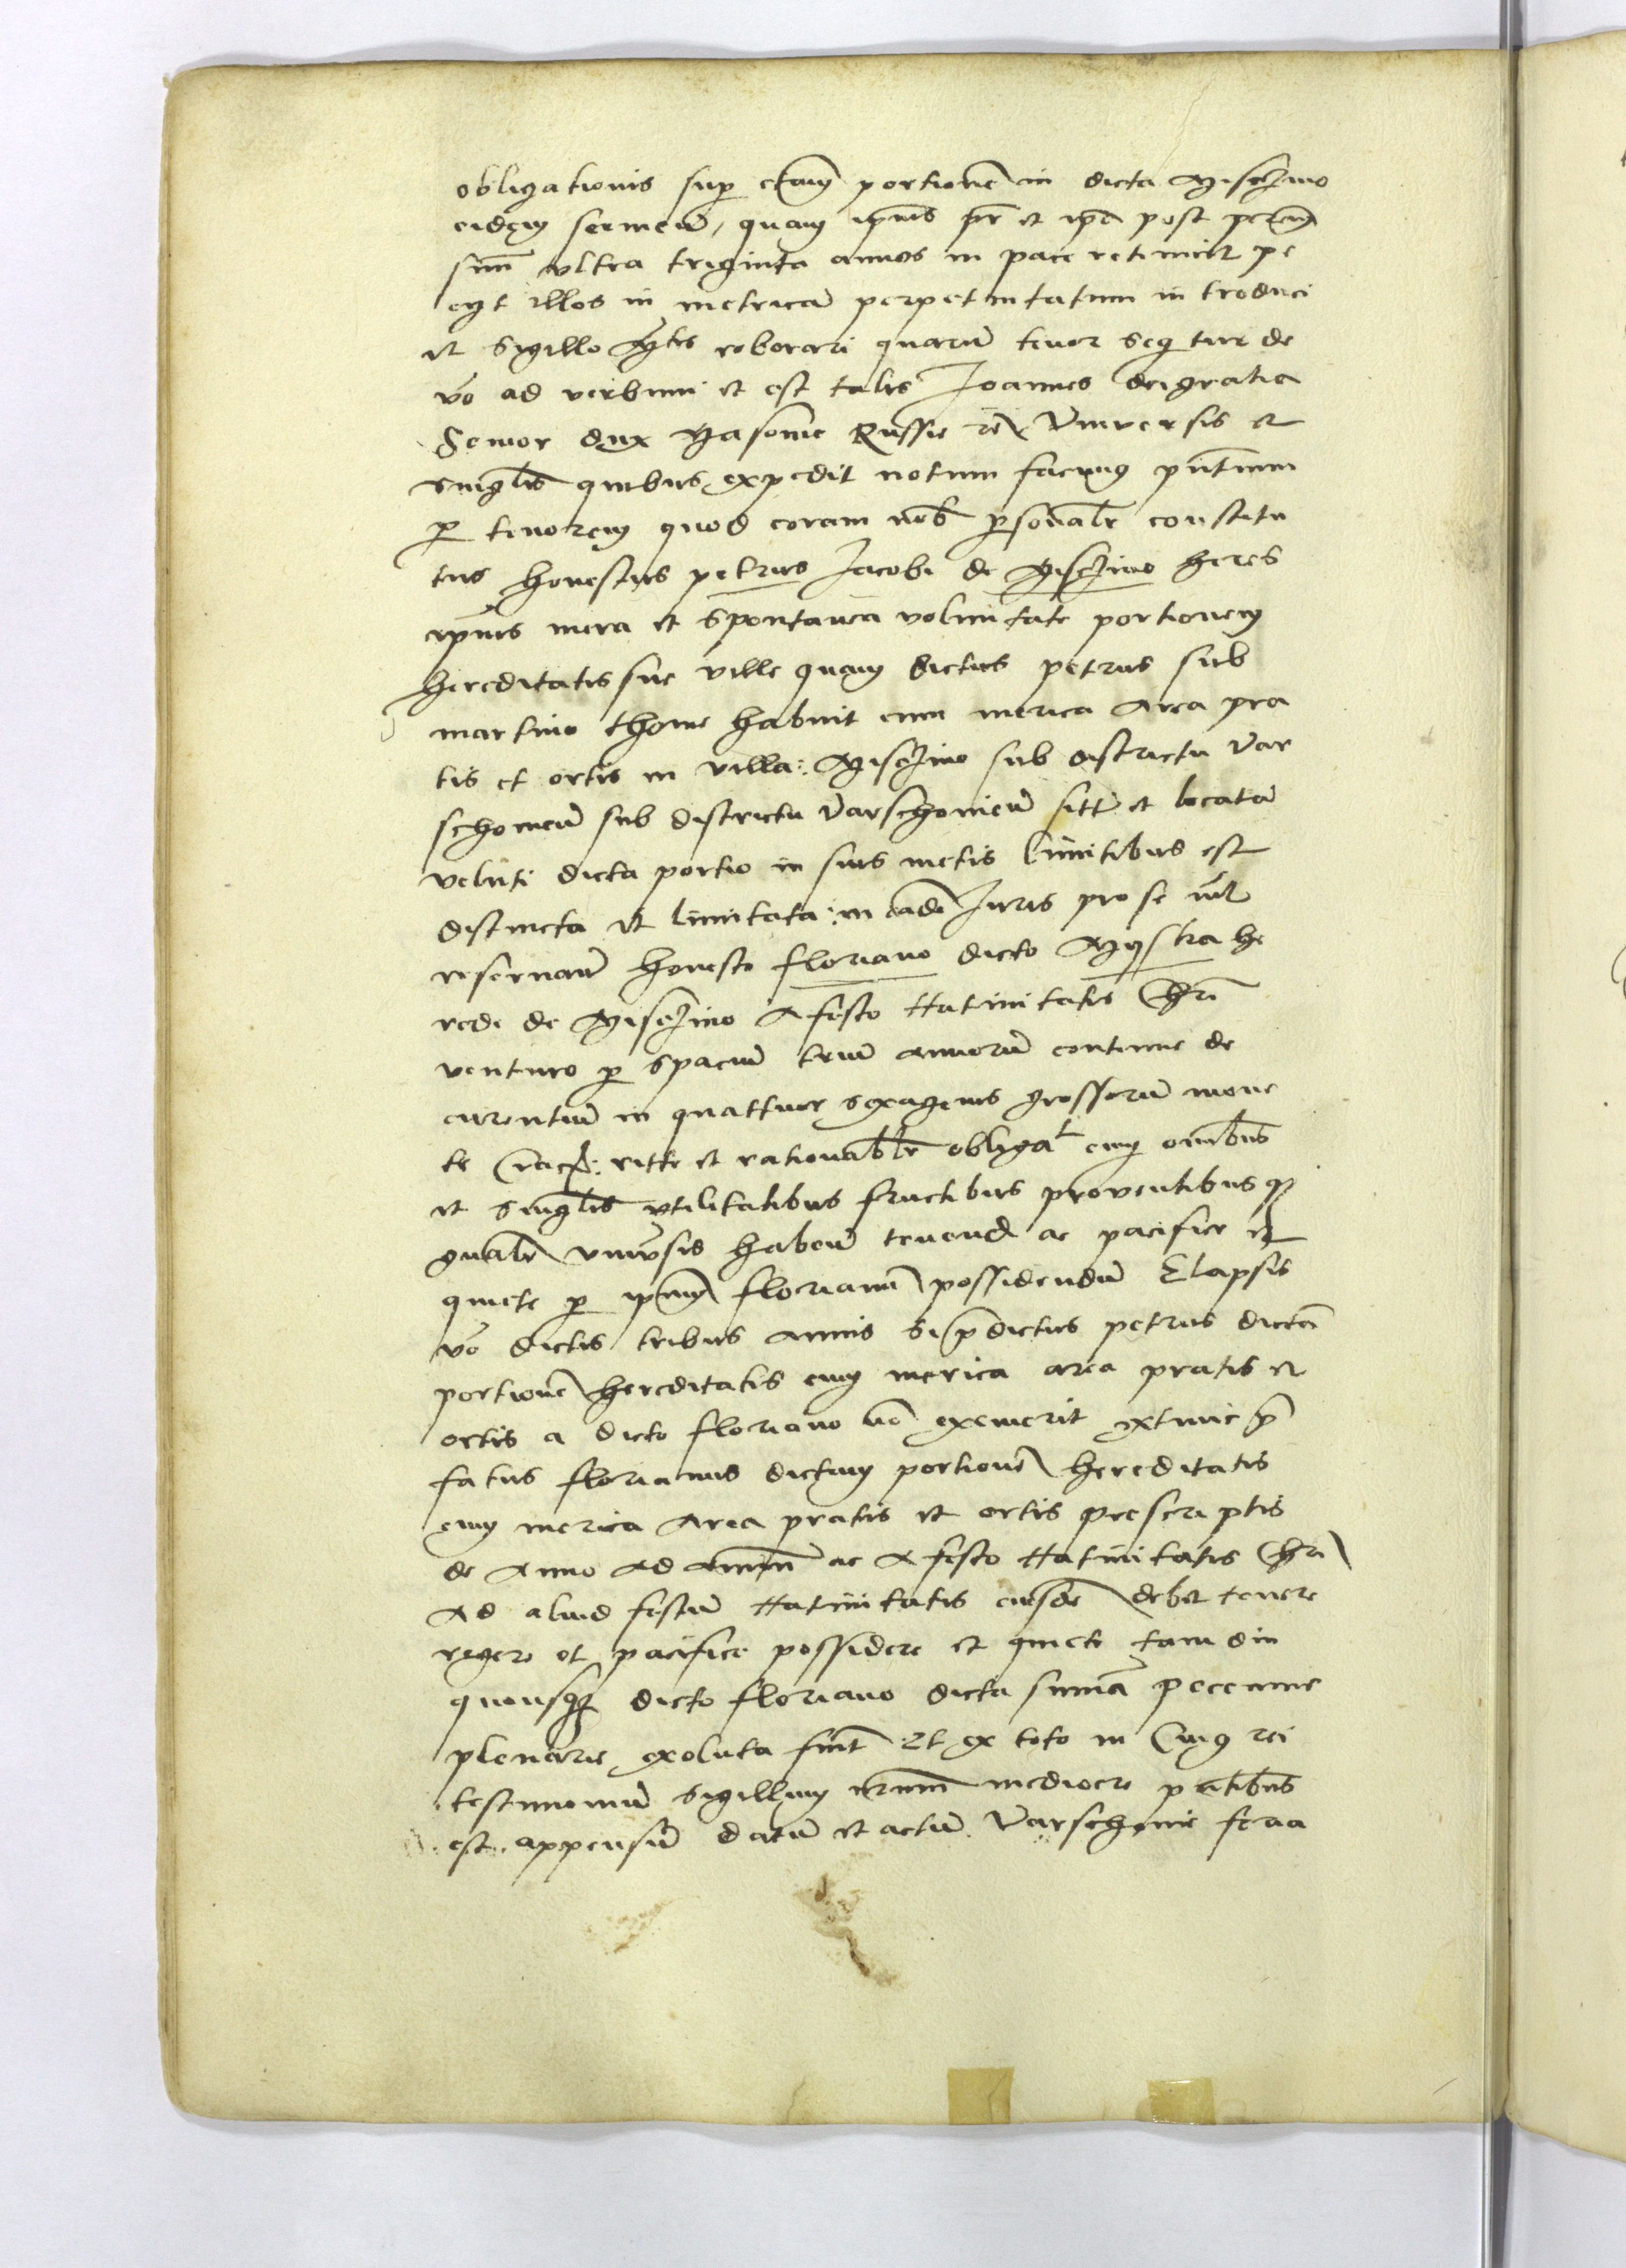 obligationis sup certam portione in dicta Mischino
eidem servieu, quam ipius pr et ipe post
suu ultra triginta annos in pace retinuit pe
eyt illos in metricam perpetuitatum introduci
et sigillo roborari quaru tenor sequitur de
vo ad verbum et est talis Joannes deigratia
Senior dux Masouie Russie Universis et
singlis quibus expedit notum facimus pntium
per tenorem quod coram nob personalr constitu
tus honestus petrus Jacobi de Mischino heres
ipius mera et spontanea voluntate portionem
hereditatis sue ville quam dictus petrus sub
martino thome habuit cum merica area pra
tis et ortis in villa: Mischino sub districtu var
schouieu sub districtu varschouieu sitt et locata
veluti dicta portio in suis metis limitibus est
distincta et limitata: in eade Juris pro se nil
reseruau honesto floriano dicto Mystra he
rede de Mischino A festo Natiuitatis Chri
venturo per spaciu triu annoru continue de
currentiu in quattuor sexagenis grossoru mone
te ritte et rationablr obligat cum omibus
et singlis vtilitatibus fructibus prouentibusq
gnalr vniuersis habeu tenend ac pacifice et
quiete per ipum florianu possidendu Elapsis
vo dictis tribus annis si predictus petrus dicta
portione hereditatis cum merica area pratis et
ortis a dicto floriano no exemerit extunc pre
fatus florianus dictam portione hereditatis
cum merica area pratis et ortis prescriptis
de Anno ad annum ac A festo Natiuitatis Chri
Ad aliud festu Natiuitatis eiusde debet tenere
regere et pacifice possidere et quiete tam diu
quousq dicto floriano dicta suma peccunie
plenarie exoluta fuit Et ex toto in Cuius rei
testimoniu sigillum nrum mediocre pntibus
est appensu datu et actu Varschouie feria